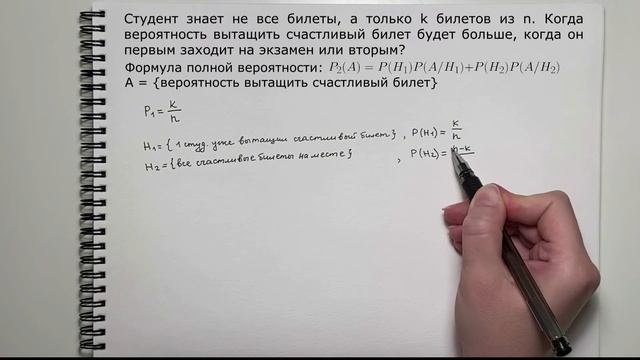 Студент знает не все билеты, а только k билетов из n. Когда
вероятность вытащить счастливый билет будет больше, когда он
первым заходит на экзамен или вторым?
Формула полной вероятности: P₂(A) = P(H₁)P(A/H₁)+P(H₂)P(A/H₂)
A = {вероятность вытащить счастливый билет}
P₁ = k/n
H₁ = { 1 студ. уже вытащил счастливый билет } , P(H₁) = k/n
H₂ = {все счастливые билеты на месте } , P(H₂) = n-k